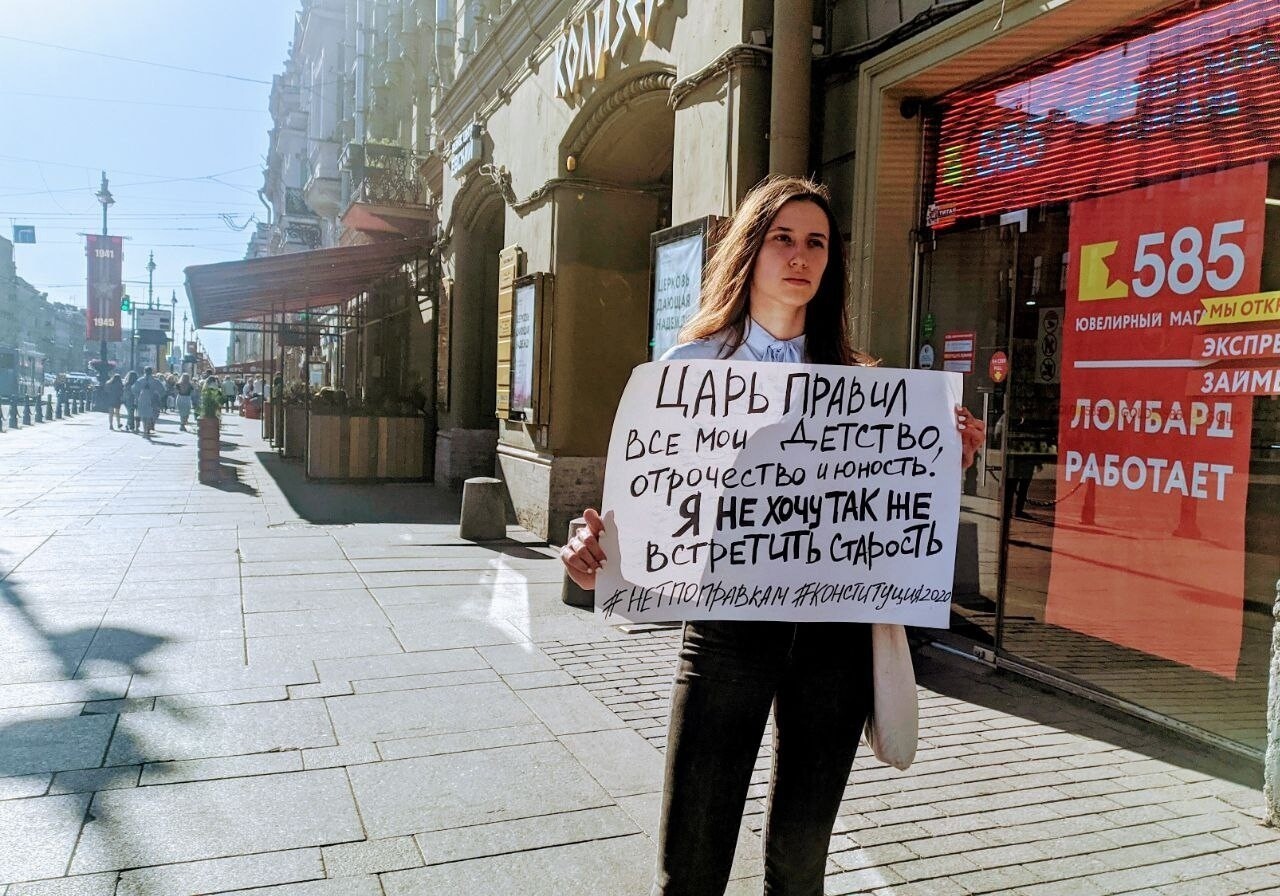 КОЛИЗЕ
1941
1945
ЦЕРКОВЬ
ДАЮЩАЯ
НАДЕЖДУ
ЦАРЬ ПРАВИЛ
ВСЕ МОИ ДЕТСТВО,
ОТРОЧЕСТВО И ЮНОСТЬ.
Я НЕ ХОЧУ ТАК ЖЕ
ВСТРЕТИТЬ СТАРОСТЬ
#НЕТПОПРАВКАМ #КОНСТИТУЦИЯ2020
585
ТИТАН
585
ЮВЕЛИРНЫЙ МАГ
МЫ ОТК
ЭКСПРЕ
ЗАЙМ
ЛОМБАРД
РАБОТАЕТ